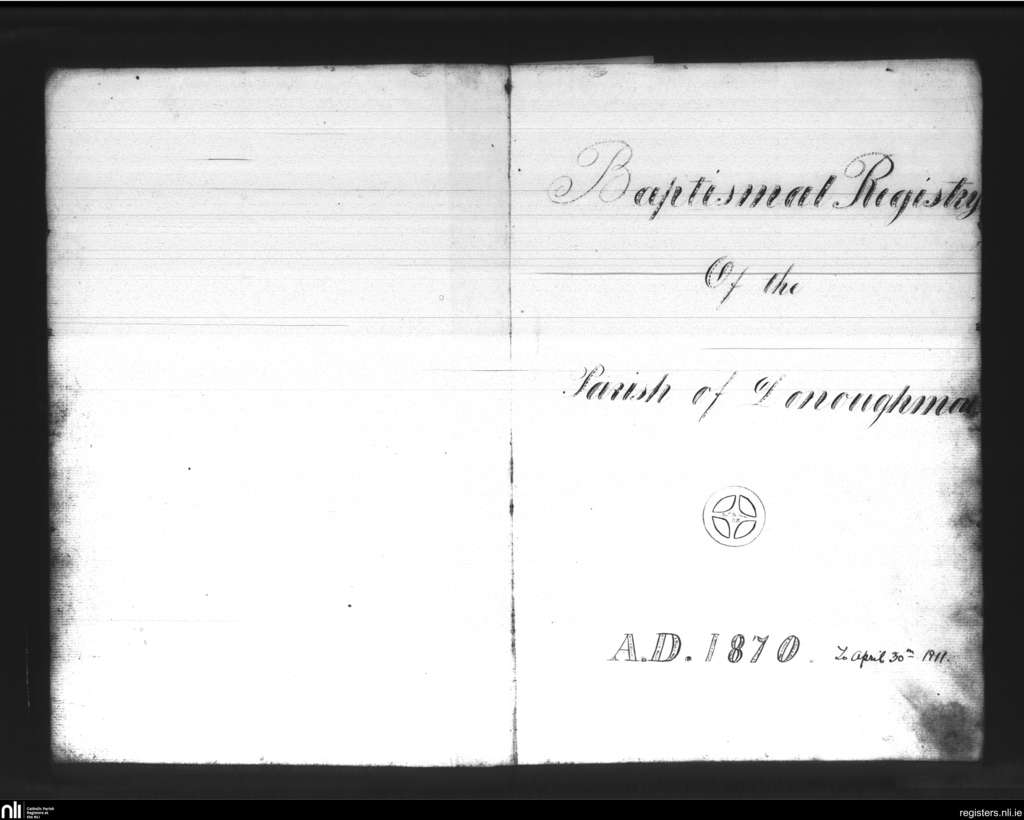 Baptismal Registry
Of the
Parish of Donoughmo
A.D. 1870. To April 30th 1911.
nli
Catholic Parish
Registers at
the NLI
registers.nli.ie